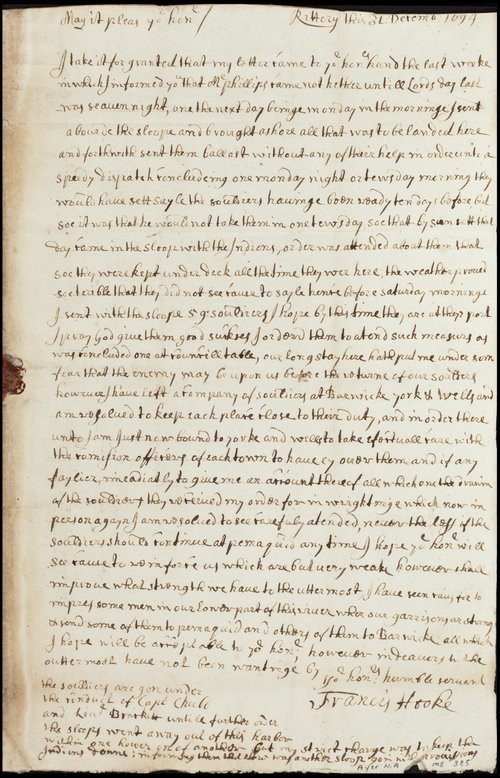 May it pleas yor honor /
Kittery this 31 Decemb 1694
I take it for granted that my letter came to yor honors hand the last weeke
in which I informed you that Mr phillips came not hether untill Lords day last
was seaven night, one the next day beinge monday in the morninge I sent
aboarde the sloope and brought ashore all that was to be landed here
and forthwith sent them ballast without any of their help in order unto a
speedy dispatch concludeing one monday night or tewsday morning they
would have sett sayle the souldiers haveinge been ready ten days before but
soe it was that he would not take them in one tewsday soe that by sunn sett that
day came in the sloop with the Indions, order was attended about them that
soe they were kept under deck all the time they wer here, the weather proved
soe terible that they did not see cause to sayle hence before saturday morninge
I sent with the sloope 59: souldiers I hope by this time they are at their port
I pray God give them good sukses I orderd them to atend such measurs as
was concluded one at councill table, our long stay here hath put me under som
fear that the enemy may be upon us before the returne of our souldiers
however I have left a company of souldiers at Barwicke york & Wells and
am resolved to keep each place close to their duty, and in order there
unto I am Just now bound to yorke and wells to take efectuall care with
the comision officers of each town to have ey over them and if any
faylier, imeadiatly to give me an account there of all which one the
of the souldiers they received my order for in wrighting which now in
person agayn I am resolved to see carefully atended, never the less if the
souldiers should continue at pemaquid any time I hope yor honor will
see cause to reinforce us which are but very weake however shall
improve what strength we have to the uttermost, I have seen caus for to
impres some men in our lower part of this river wher our garrisons ar strong
& send some of them to pemaquid and others of them to Barwicke all which
I hope will be acceptable to yor honor, however indeavers to the
outtermost have not been wantinge by yor honors humble servant
Francis Hooke
the souldiers are gon under
the conduct of Capt Chub
and Leut Brackett untill further order
the sloops went away out of this harber
within one hower on of another but my strict charge was to keep the
Indions downe: informing them that ther was another sloop gon with provisions
Ayer N.A
MS 385